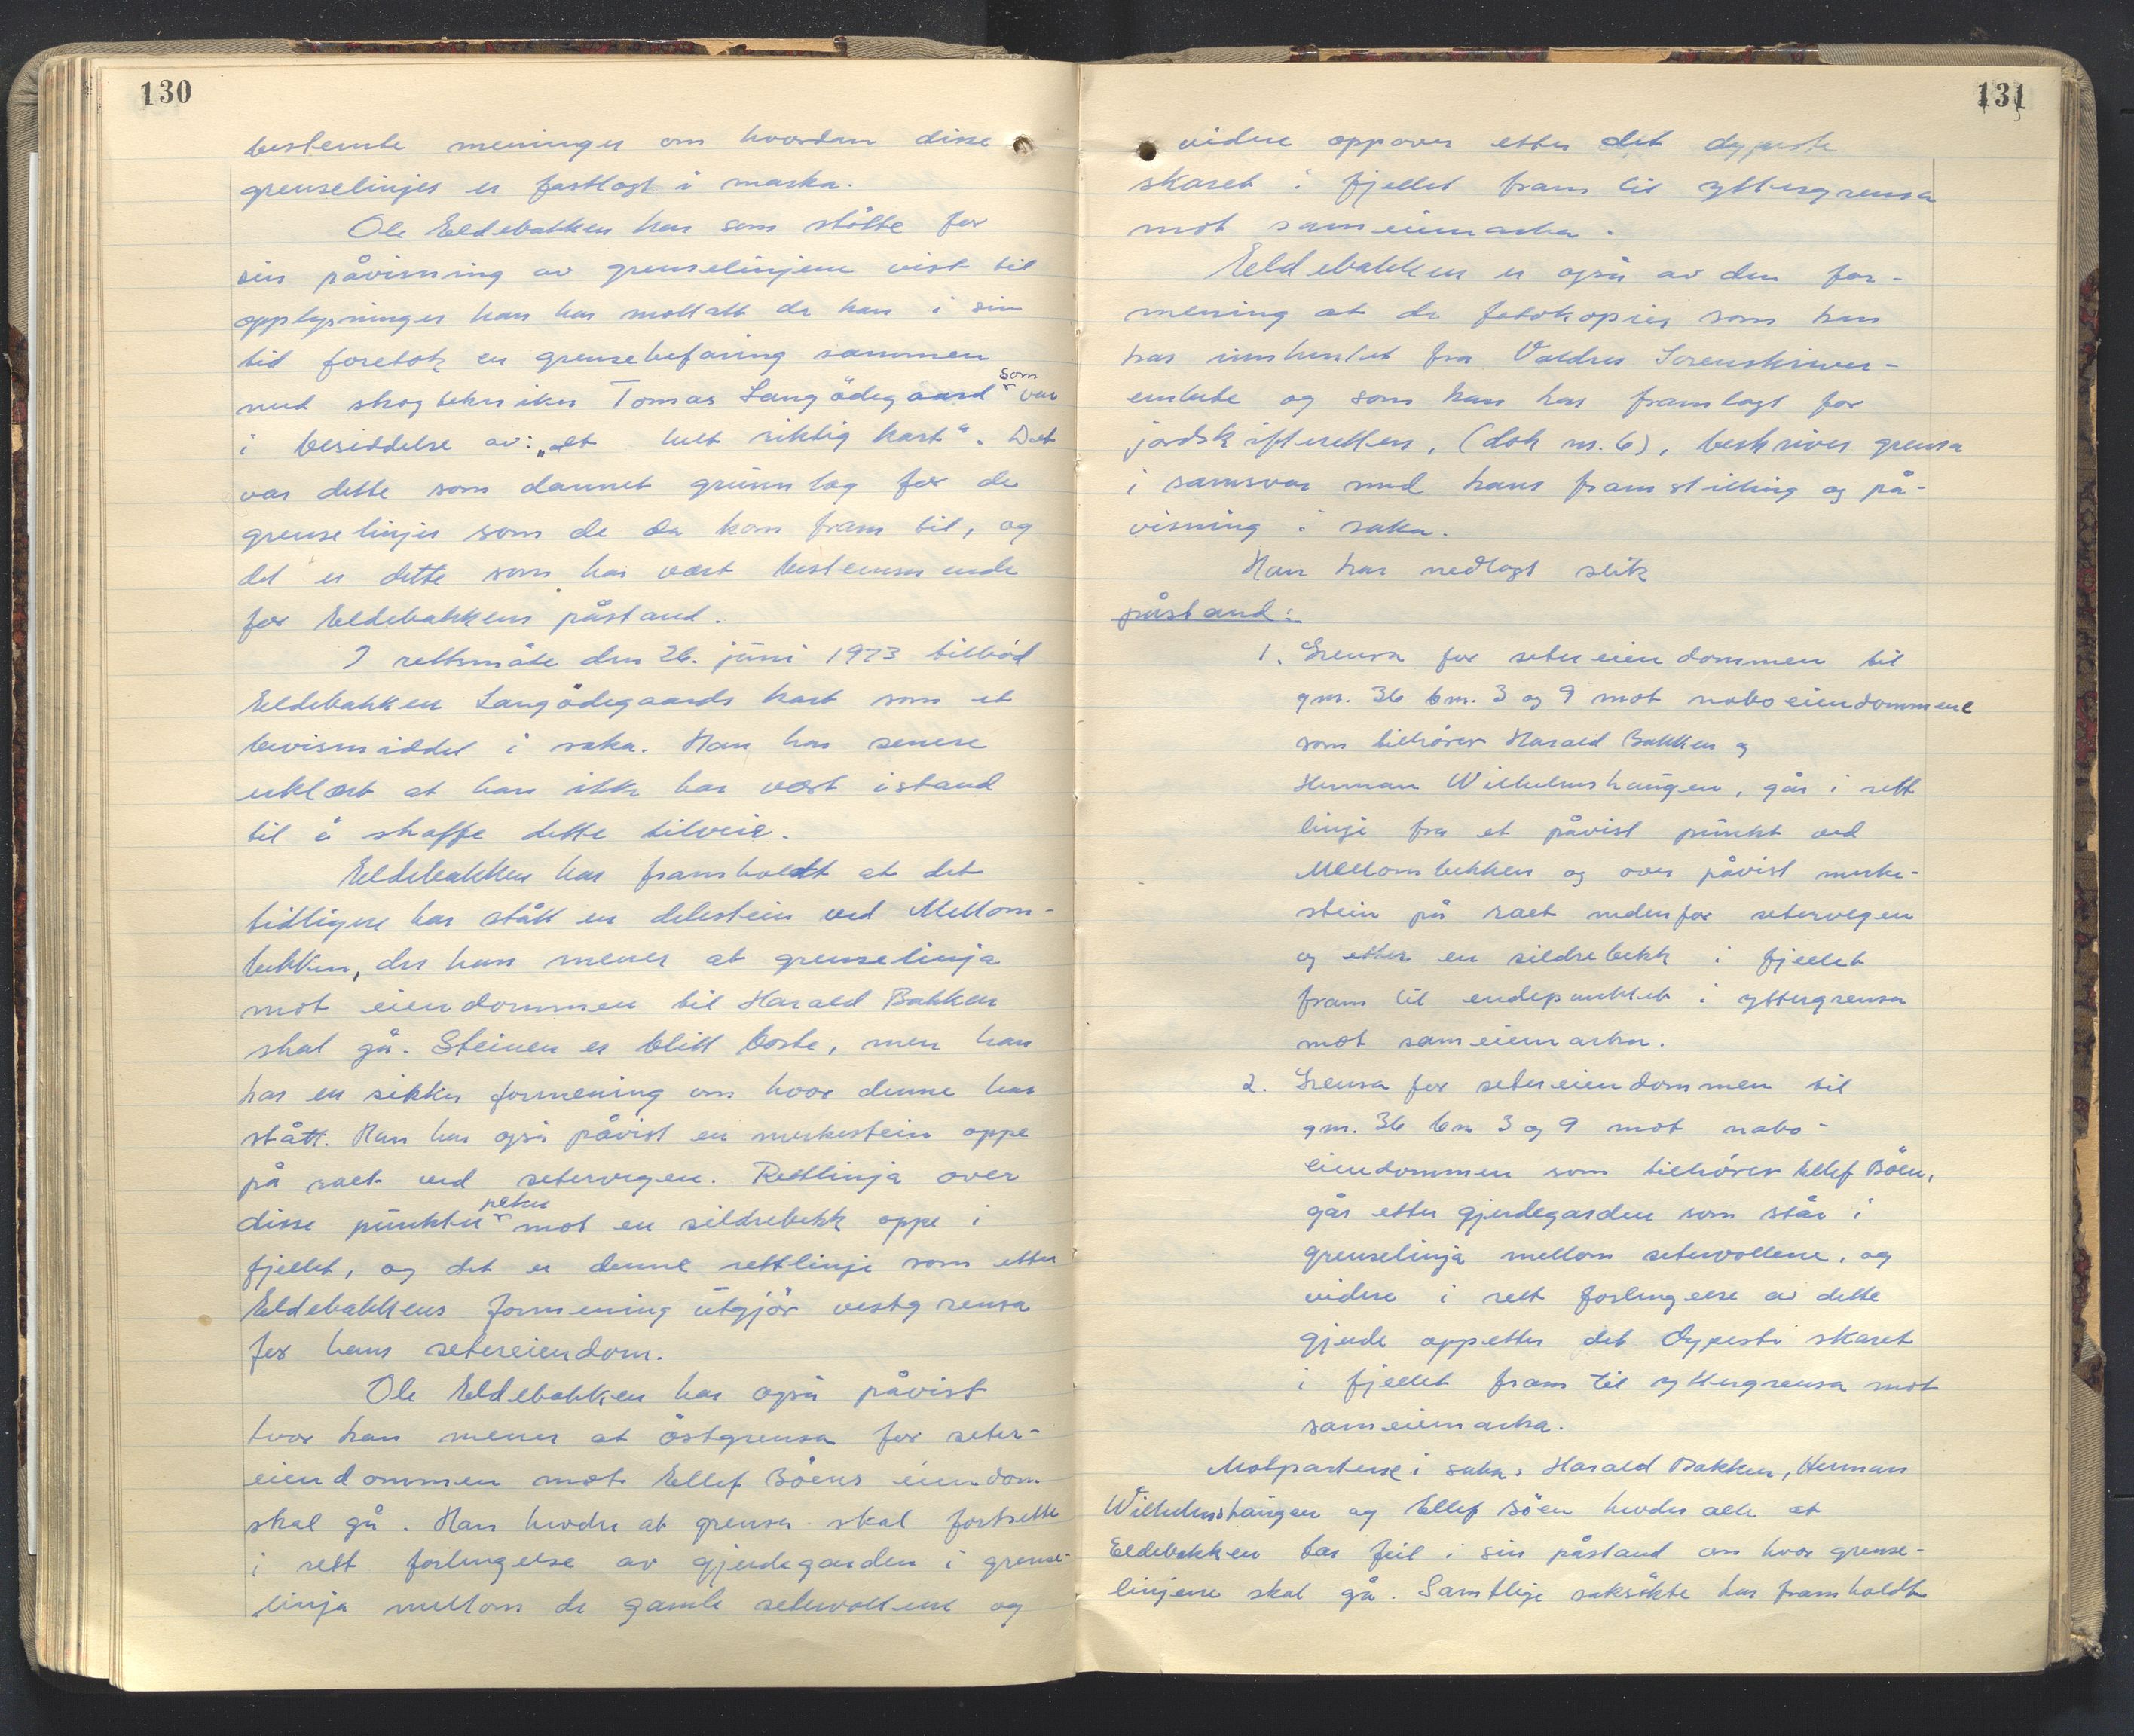 130
bestemte meninger om hvordan disse
grenselinjer er fastlagt i marka.
Ole Eldebakken har som stötte for
sin påvisning av grenselinjene vist til
opplysninger han har mottatt da han i sin
tid foretok en grensebefaring sammen
med skogtekniker Tomas Langödegaard som var
i besiddelse av: „et helt riktig kart“. Det
var dette som dannet grunnlag for de
grenselinjer som de da kom fram til, og
det er dette som har vært bestemmende
for Eldebakkens påstand.
I rettsmöte den 26. juni 1973 tilbód
Eldebakken Langödegaards kart som et
bevismiddel i saka. Han har senere
erklært at han ikke har vært istand
til å skaffe dette tilveie.
Eldebakken har framholdt at det
tidligere har stått en delestein ved Mellom-
bekken, der han mener at grenselinja
mot eiendommen til Harald Bakken
skal gå. Steinen er blitt borte, men han
har en sikker formening om hvor denne har
stått. Han har også påvist en merkestein oppe
på raet ved setervegen. Rettlinja over
disse punkter peker mot en sildrebekk oppe i
fjellet, og det er denne rettlinje som etter
Eldebakkens formening utgjör vestgrensa
for hans setereiendom.
Ole Eldebakken har også påvist
hvor han mener at östgrensa for seter-
eiendommen mot Ellef Böens eiendom
skal gå. Han hevder at grensa skal fortsette
i rett forlengelse av gjerdegarden i grense-
linja mellom de gamle setervollene og
131
videre oppover etter det dypeste
skaret i fjellet fram til yttergrensa
mot sameiemarka.
Eldebakken er også av den for-
mening at de fotokopier som han
har innhentet fra Valdres Sorenskriver-
embete og som han har framlagt for
jordskifteretten, (dok nr. 6), beskriver grensa
i samsvar med hans framstilling og på-
visning i saka.
Han har nedlagt slik
påstand:
1. Grensa for setereiendommen til
gnr. 36 bnr. 3 og 9 mot naboeiendommene
som tilhörer Harald Bakken og
Herman Wilhelmshaugen, går i rett
linje fra et påvist punkt ved
Mellombekken og over påvist merke-
stein på raet nedenfor setervegen
og etter en sildrebekk i fjellet
fram til endepunktet i yttergrensa
mot sameiemarka.
2. Grensa for setereiendommen til
gnr. 36 bnr 3 og 9 mot nabo-
eiendommen som tilhörer Ellef Böen,
går etter gjerdegarden som står i
grenselinja mellom setervollene, og
videre i rett forlengelse av dette
gjerde oppetter det dypeste skaret
i fjellet fram til yttergrensa mot
sameiemarka.
Motpartene i saka: Harald Bakken, Herman
Wilhelmshaugen og Ellef Böen hevder alle at
Eldebakken tar feil i sin påstand om hvor grense-
linjene skal gå. Samtlige saksökte har framholdt